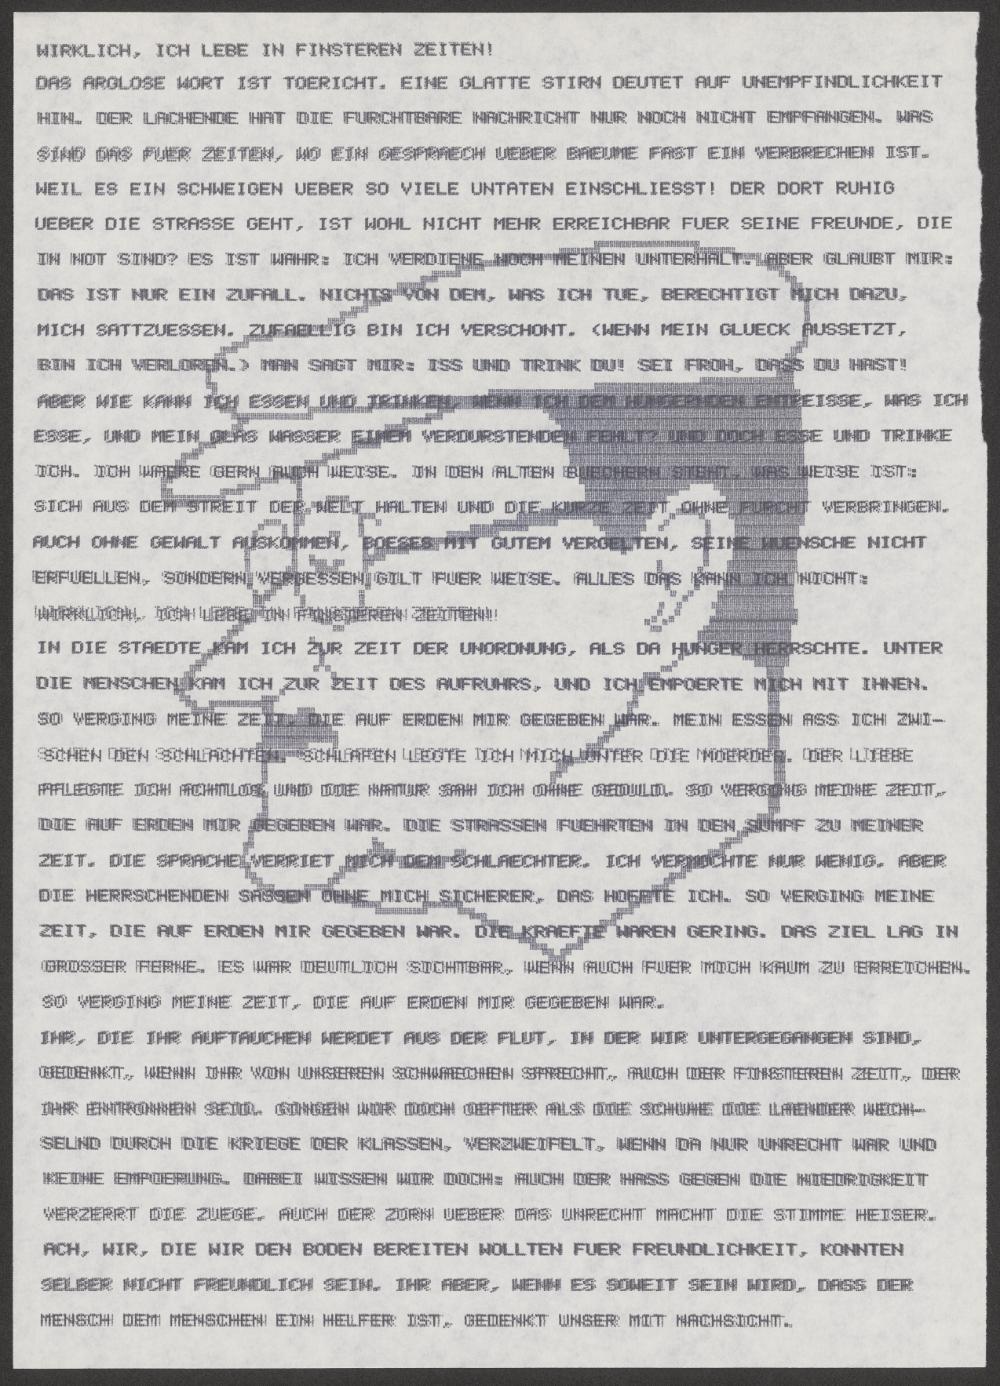 WIRKLICH, ICH LEBE IN FINSTEREN ZEITEN!
DAS ARGLOSE WORT IST TOERICHT. EINE GLATTE STIRN DEUTET AUF UNEMPFINDLICHKEIT
HIN. DER LACHENDE HAT DIE FURCHTBARE NACHRICHT NUR NOCH NICHT EMPFANGEN. WAS
SIND DAS FUER ZEITEN, WO EIN GESPRAECH UEBER BAEUME FAST EIN VERBRECHEN IST.
WEIL ES EIN SCHWEIGEN UEBER SO VIELE UNTATEN EINSCHLIESST! DER DORT RUHIG
UEBER DIE STRASSE GEHT, IST WOHL NICHT MEHR ERREICHBAR FUER SEINE FREUNDE, DIE
IN NOT SIND? ES IST WAHR: ICH VERDIENE NOCH MEINEN UNTERHALT. ABER GLAUBT MIR:
DAS IST NUR EIN ZUFALL. NICHTS VON DEM, WAS ICH TUE, BERECHTIGT MICH DAZU,
MICH SATTZUESSEN. ZUFAELLIG BIN ICH VERSCHONT. (WENN MEIN GLUECK AUSSETZT,
BIN ICH VERLOREN.) MAN SAGT MIR: ISS UND TRINK DU! SEI FROH, DASS DU HAST!
ABER WIE KANN ICH ESSEN UND TRINKEN, WENN ICH DEM HUNGERNDEN ENTREISSE, WAS ICH
ESSE, UND MEIN GLAS WASSER EINEM VERDURSTENDEN FEHLT? UND DOCH ESSE UND TRINKE
ICH. ICH WAERE GERN AUCH WEISE. IN DEN ALTEN BUECHERN STEHT, WAS WEISE IST:
SICH AUS DEM STREIT DER WELT HALTEN UND DIE KURZE ZEIT OHNE FURCHT VERBRINGEN.
AUCH OHNE GEWALT AUSKOMMEN, BOESES MIT GUTEM VERGELTEN, SEINE WUENSCHE NICHT
ERFUELLEN, SONDERN VERGESSEN GILT FUER WEISE. ALLES DAS KANN ICH NICHT:
WIRKLICH, ICH LEBE IN FINSTEREN ZEITEN!
IN DIE STAEDTE KAM ICH ZUR ZEIT DER UNORDNUNG, ALS DA HUNGER HERRSCHTE. UNTER
DIE MENSCHEN KAM ICH ZUR ZEIT DES AUFRUHRS, UND ICH EMPOERTE MICH MIT IHNEN.
SO VERGING MEINE ZEIT, DIE AUF ERDEN MIR GEGEBEN WAR. MEIN ESSEN ASS ICH ZWI-
SCHEN DEN SCHLACHTEN. SCHLAFEN LEGTE ICH MICH UNTER DIE MOERDER. DER LIEBE
PFLEGTE ICH ACHTLOS UND DIE NATUR SAH ICH OHNE GEDULD. SO VERGING MEINE ZEIT,
DIE AUF ERDEN MIR GEGEBEN WAR. DIE STRASSEN FUEHRTEN IN DEN SUMPF ZU MEINER
ZEIT. DIE SPRACHE VERRIET MICH DEM SCHLAECHTER. ICH VERMOCHTE NUR WENIG. ABER
DIE HERRSCHENDEN SASSEN OHNE MICH SICHERER, DAS HOFFTE ICH. SO VERGING MEINE
ZEIT, DIE AUF ERDEN MIR GEGEBEN WAR. DIE KRAEFTE WAREN GERING. DAS ZIEL LAG IN
GROSSER FERNE. ES WAR DEUTLICH SICHTBAR, WENN AUCH FUER MICH KAUM ZU ERREICHEN.
SO VERGING MEINE ZEIT, DIE AUF ERDEN MIR GEGEBEN WAR.
IHR, DIE IHR AUFTAUCHEN WERDET AUS DER FLUT, IN DER WIR UNTERGEGANGEN SIND,
GEDENKT, WENN IHR VON UNSEREN SCHWAECHEN SPRECHT, AUCH DER FINSTEREN ZEIT, DER
IHR ENTRONNEN SEID. GINGEN WIR DOCH OEFTER ALS DIE SCHUHE DIE LAENDER WECH-
SELND DURCH DIE KRIEGE DER KLASSEN, VERZWEIFELT, WENN DA NUR UNRECHT WAR UND
KEINE EMPOERUNG. DABEI WISSEN WIR DOCH: AUCH DER HASS GEGEN DIE NIEDRIGKEIT
VERZERRT DIE ZUEGE. AUCH DER ZORN UEBER DAS UNRECHT MACHT DIE STIMME HEISER.
ACH, WIR, DIE WIR DEN BODEN BEREITEN WOLLTEN FUER FREUNDLICHKEIT, KONNTEN
SELBER NICHT FREUNDLICH SEIN. IHR ABER, WENN ES SOWEIT SEIN WIRD, DASS DER
MENSCH DEM MENSCHEN EIN HELFER IST, GEDENKT UNSER MIT NACHSICHT.